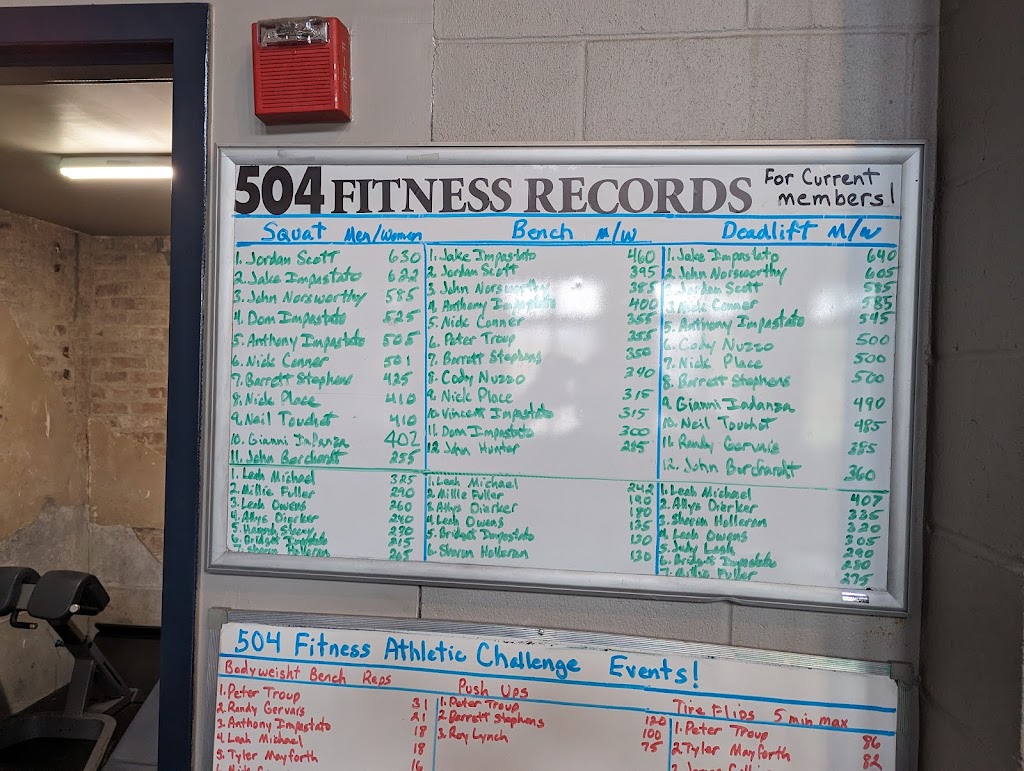 504 FITNESS RECORDS For Current members!
Squat Men/Women
1. Jordan Scott 630
2. Jake Impastato 622
3. John Norsworthy 585
4. Dom Impastato 525
5. Anthony Impastato 505
6. Nick Conner 501
7. Barrett Stephens 425
8. Nick Place 410
9. Neil Touchet 410
10. Gianni Indanza 402
11. John Borchardt 255
1. Leah Michael 325
2. Millie Fuller 290
3. Leah Owens 260
4. Allys Dierker 240
5. Hannah
6. Bridget Impastato
7. Sharon Holleran 265
Bench M/W
1. Jake Impastato 460
2. Jordan Scott 395
3. John Norsworthy 385
4. Anthony Impastato 400
5. Nick Conner 355
6. Peter Troup 355
7. Barrett Stephens 350
8. Cody Nuzzo 340
9. Nick Place 315
10. Vincent Impastato 315
11. Dom Impastato 300
12. John Hunter 285
1. Leah Michael 242
2. Millie Fuller 190
3. Allys Dierker 180
4. Leah Owens 135
5. Bridget Impastato 130
6. Sharon Holleran 130
Deadlift M/W
1. Jake Impastato 640
2. John Norsworthy 605
3. Jordan Scott 585
4. Nick Conner 585
5. Anthony Impastato 545
6. Cody Nuzzo 500
7. Nick Place 500
8. Barrett Stephens 500
9. Gianni Indanza 490
10. Neil Touchet 485
11. Randy Gervais 385
12. John Borchardt 360
1. Leah Michael 407
2. Allys Dierker 335
3. Sharon Holleran 320
4. Leah Owens 305
5. Judy Leah 290
6. Bridget Impastato 280
7. Millie Fuller 275
504 Fitness Athletic Challenge Events!
Bodyweight Bench Reps
1. Peter Troup 31
2. Randy Gervais 21
3. Anthony Impastato 18
4. Leah Michael 18
5. Tyler Mayforth 16
Push Ups
1. Peter Troup 120
2. Barrett Stephens 100
3. Roy Lynch 75
Tire Flips 5 min max
1. Peter Troup 86
2. Tyler Mayforth 82